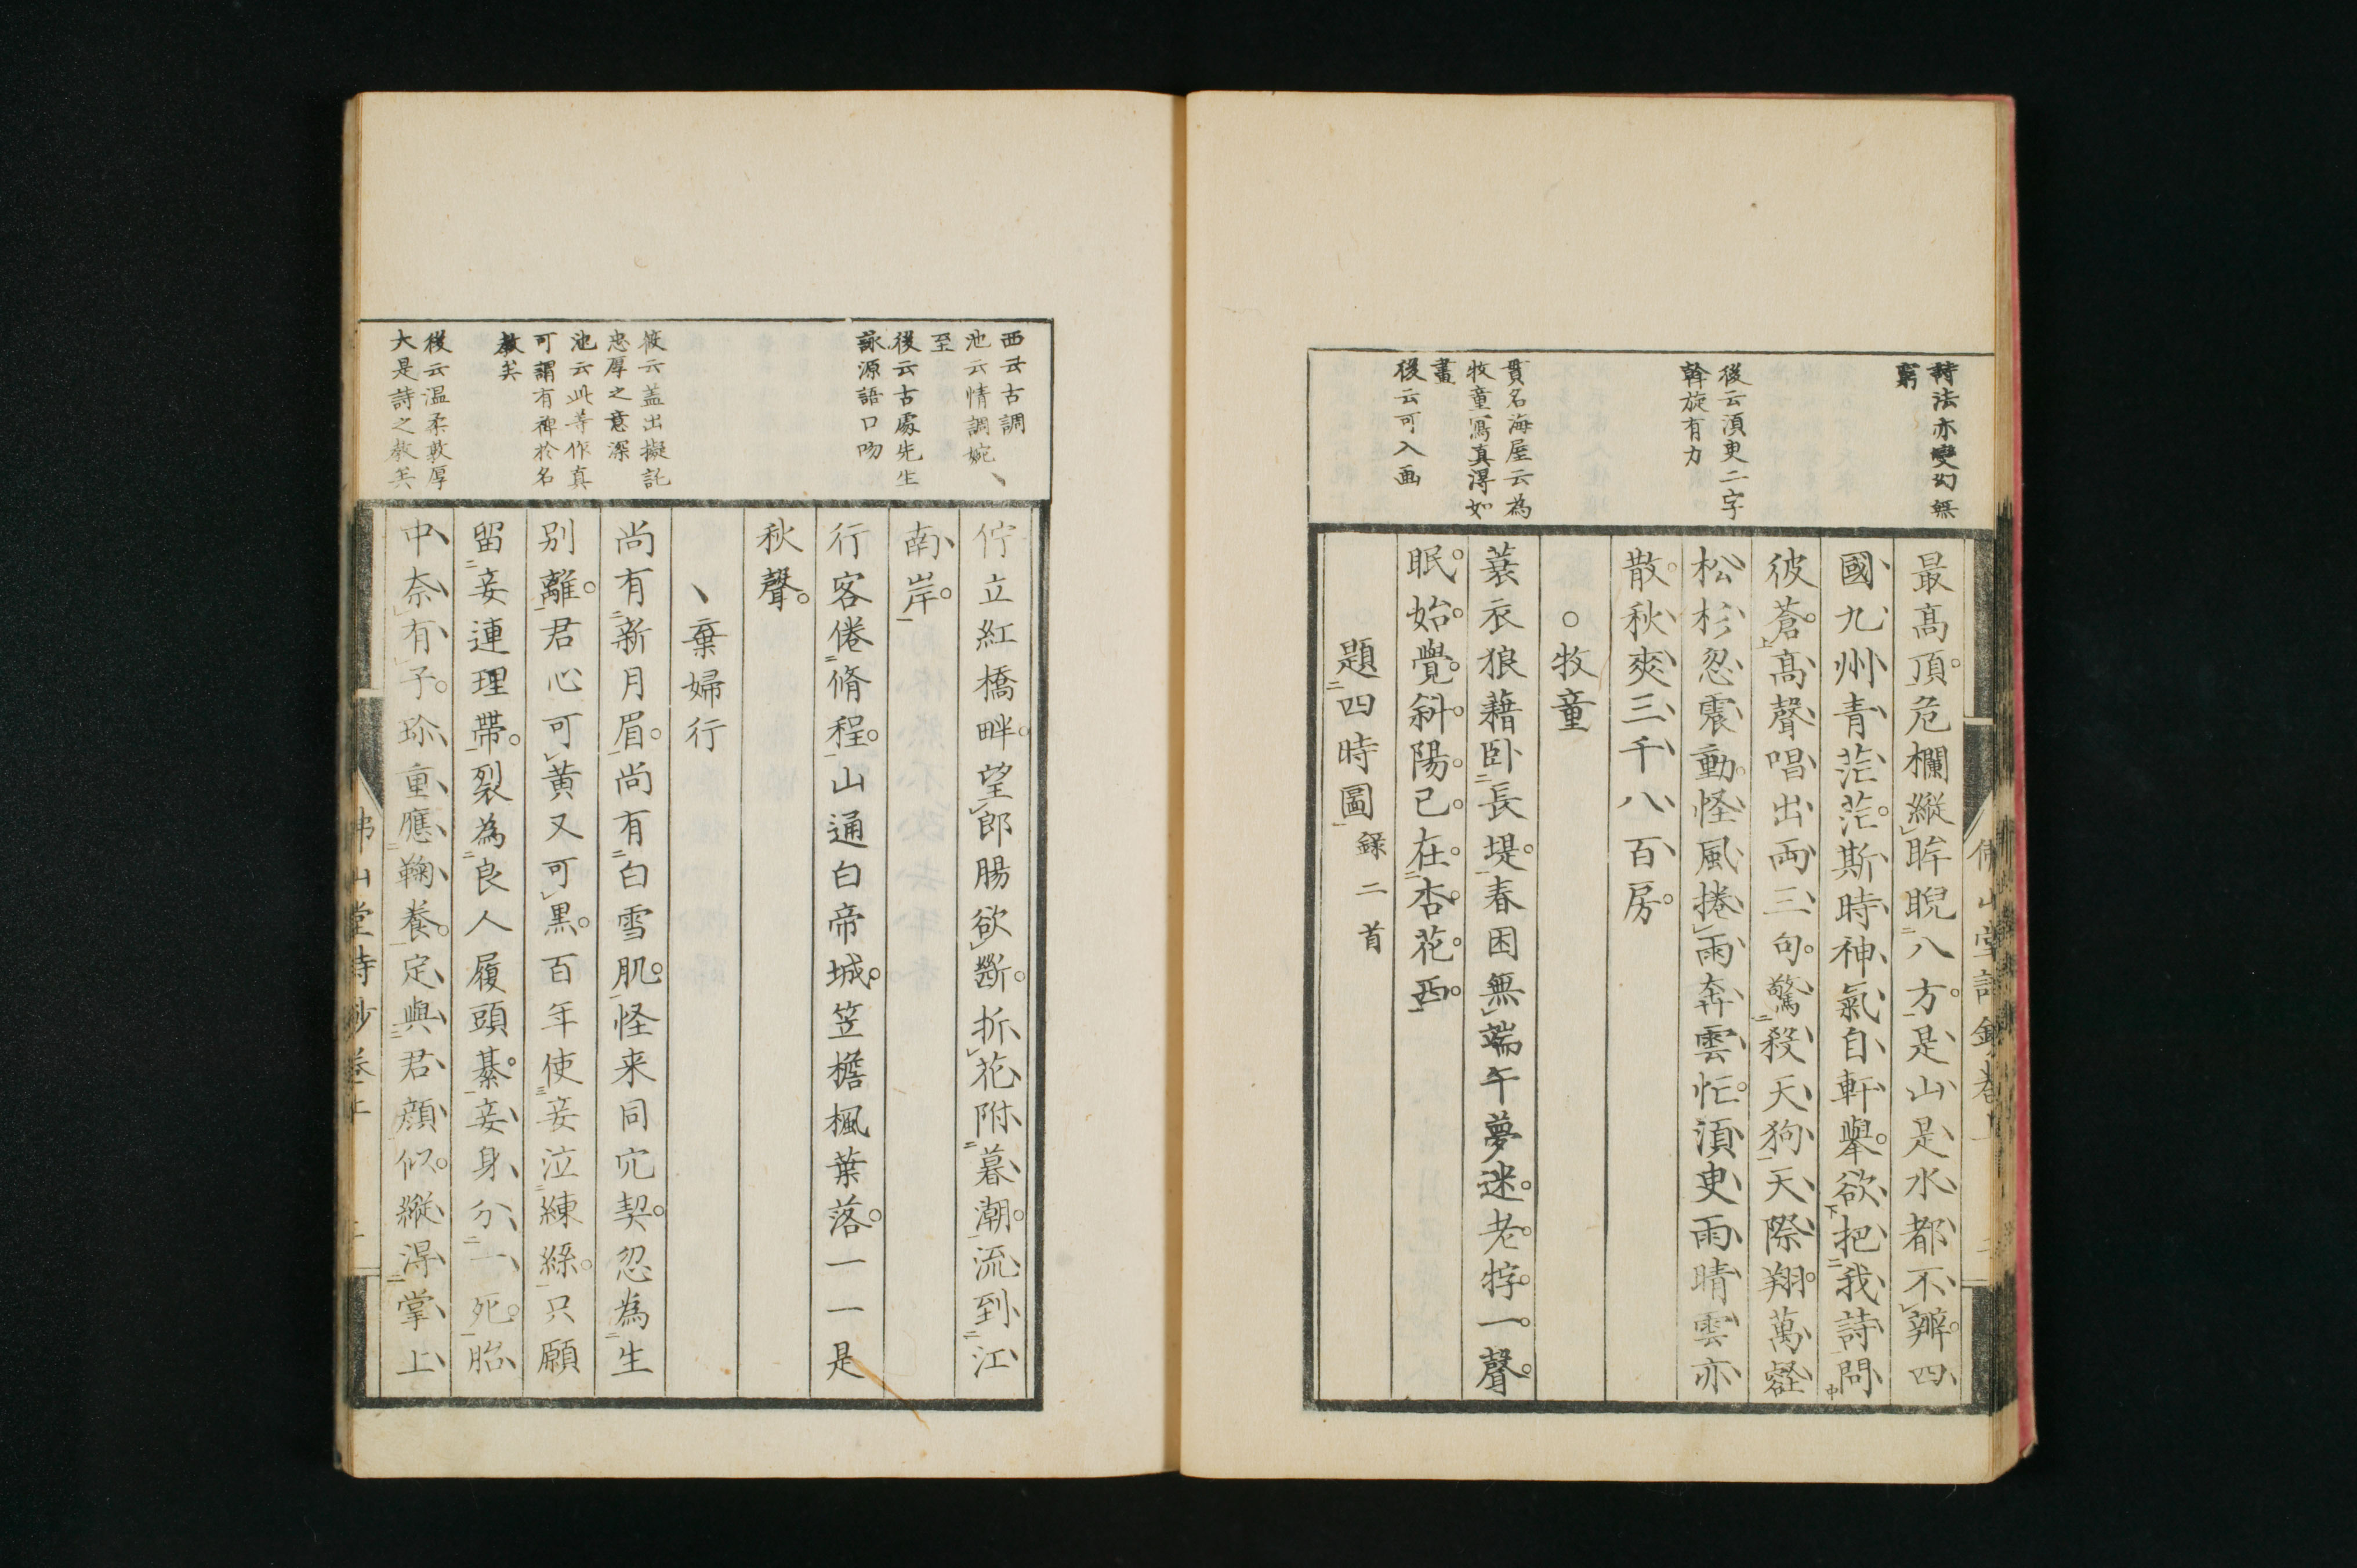 詩法亦變幻無
窮
後云須更二字
斡旋有力
貫名海屋云為
牧童寫真得如
畫
後云可入画
最高頂危欄縱眸睨八方是山是水都不辨四
國九州青茫茫斯時神氣自軒擧欲把我詩問
彼蒼高聲唱出両三句驚殺天狗天際翔萬壑
松杉忽震動怪風捲雨奔雲忙須更雨晴雲亦
散秋爽三千八百房
○牧童
蓑衣狼藉卧長堤春困無端午夢迷老牸一聲
眠始覺斜陽已在杏花西
題四時圖錄二首
佛山堂詩鈔卷上
二
西云古調
池云情調婉
至
後云古處先生
詠源語口吻
筱云蓋出擬託
忠厚之意深
池云此等作真
可謂有裨於名
敎矣
後云温柔敦厚
大是詩之敎矣
佇立紅橋畔望郎腸欲斷折花附暮潮流到江
南岸
行客倦脩程山通白帝城笠檐楓葉落一一是
秋聲
棄婦行
尚有新月眉尚有白雪肌怪来同穴契忍為生
別離君心可黄又可黒百年使妾泣練絲只願
留妾連理帶裂為良人履頭綦妾身分一死胎
中奈有子珍重應鞠養定與君顔似縱得掌上
佛山堂詩鈔卷上